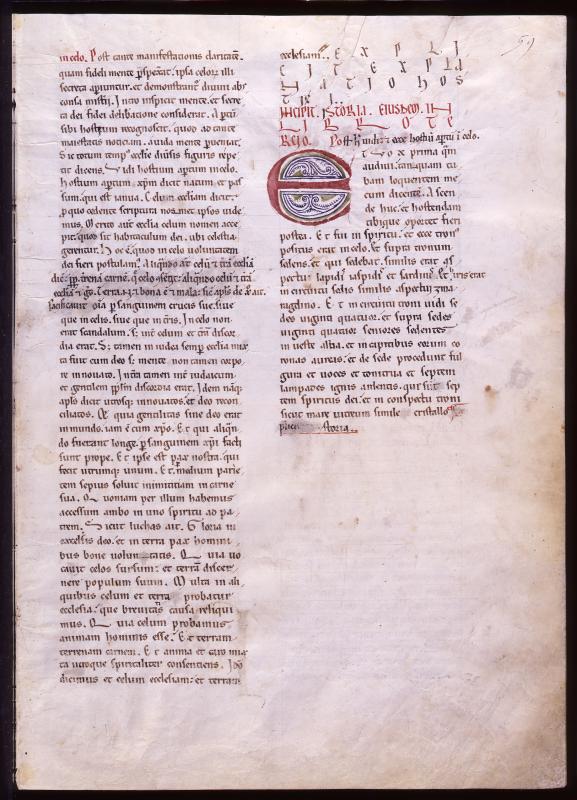 in celo. Post tante manifestationis claritatē.
quam fideli mente pspexat. ipsa celor illi
secreta apiuntur. et demonstrant
consa misterii. Initio inspicit mente. et secre
ta dei fidei delibatione considerat. apti
sibi hostium recognoscit. quod ad tante
maiestatis noticiam. auida mente pueniat.
Sic totum temp ecclie diuisis figuris repe
tit dicens. Vidi hostium aptum in celo.
hostium aptum. xpm dicit natum et pas
sum. qui est ianua. Celum eccliam dicit.
hoc est. quos in celo uoluntatem
dei fieri postulamus. Aliquando aut celū ⁊ trā eccliā
pacificauit oīa p sanguinem crucis sue. siue
que in celis. siue que in trīs. In celo non
erat scandalum. s; int celum et trā discor
dia erat. S; tamen in iudea semp ecclia mix
ta fuit cum deo s; mente. non tamen corpo
re innouato. Inta tamen int iudaicum
et gentilem pplm discordia erat. Idem naq;
apls dicit utrosq; innouatos. et deo recon
ciliatos. Et quia gentilitas sine deo erat
in mundo. iam ē cum xpō. Et qui aliqn
do fuerant longe. p sanguinem xpi facti
sunt prope. Et ipse est pax nostra. qui
fecit utrumq; unum. Et medium parie
tem sepius soluit inimicitiam in carne
sua. Quoniam per illum habemus
accessum ambo in uno spiritu ad pa
trem. Sicut luchas ait. Gloria in
excelsis deo. et in terra pax homini
bus bone uoluntatis. Quia uo
cauit celos sursum: et terrā discer
nere populum suum. Multa in ali
quibus celum et terra probatur
ecclesia: que breuitatis causa reliqui
mus. Quia celum probamus
animam hominis esse. Et terram
terrenam carnem. Et anima et caro mix
ta utroque spiritaliter consentiens. Ido
dicimus et celum ecclesiam: et terram
59
ecclesiam. EXPLI
CIT EXPLA
NATIO HOS
TII.
INCIPIT. ISTORIA. EIUSDEM. IN
LIBRO TE
RCIO. Post h uidi: et ecce hostiū aptū ī celo.
Et uox prima quā
audiui. tamquam tu
bam loquentem me
cum dicente. Ascen
de huc. et hostendam
tibi que oportet fieri
postea. Et fui in spiritu. et ecce tron
positus erat in celo. et supra tronum
sedens. et qui sedebat. similis erat as
pectui lapidi iaspidi et sardino. et yris erat
in circuitu solis similis aspectui zma
ragdino. Et in circuitu troni uidi se
des uiginti quatuor. et supra sedes
uiginti quatuor seniores sedentes
in ueste alba. et in capitibus eorum co
ronas aureas. et de sede procedunt ful
gura et uoces et tonitrua et septem
lampades ignis ardentis. qui sunt sep
tem spiritus dei. et in conspectu troni
sicut mare uitreum simile cristallo.
storia.